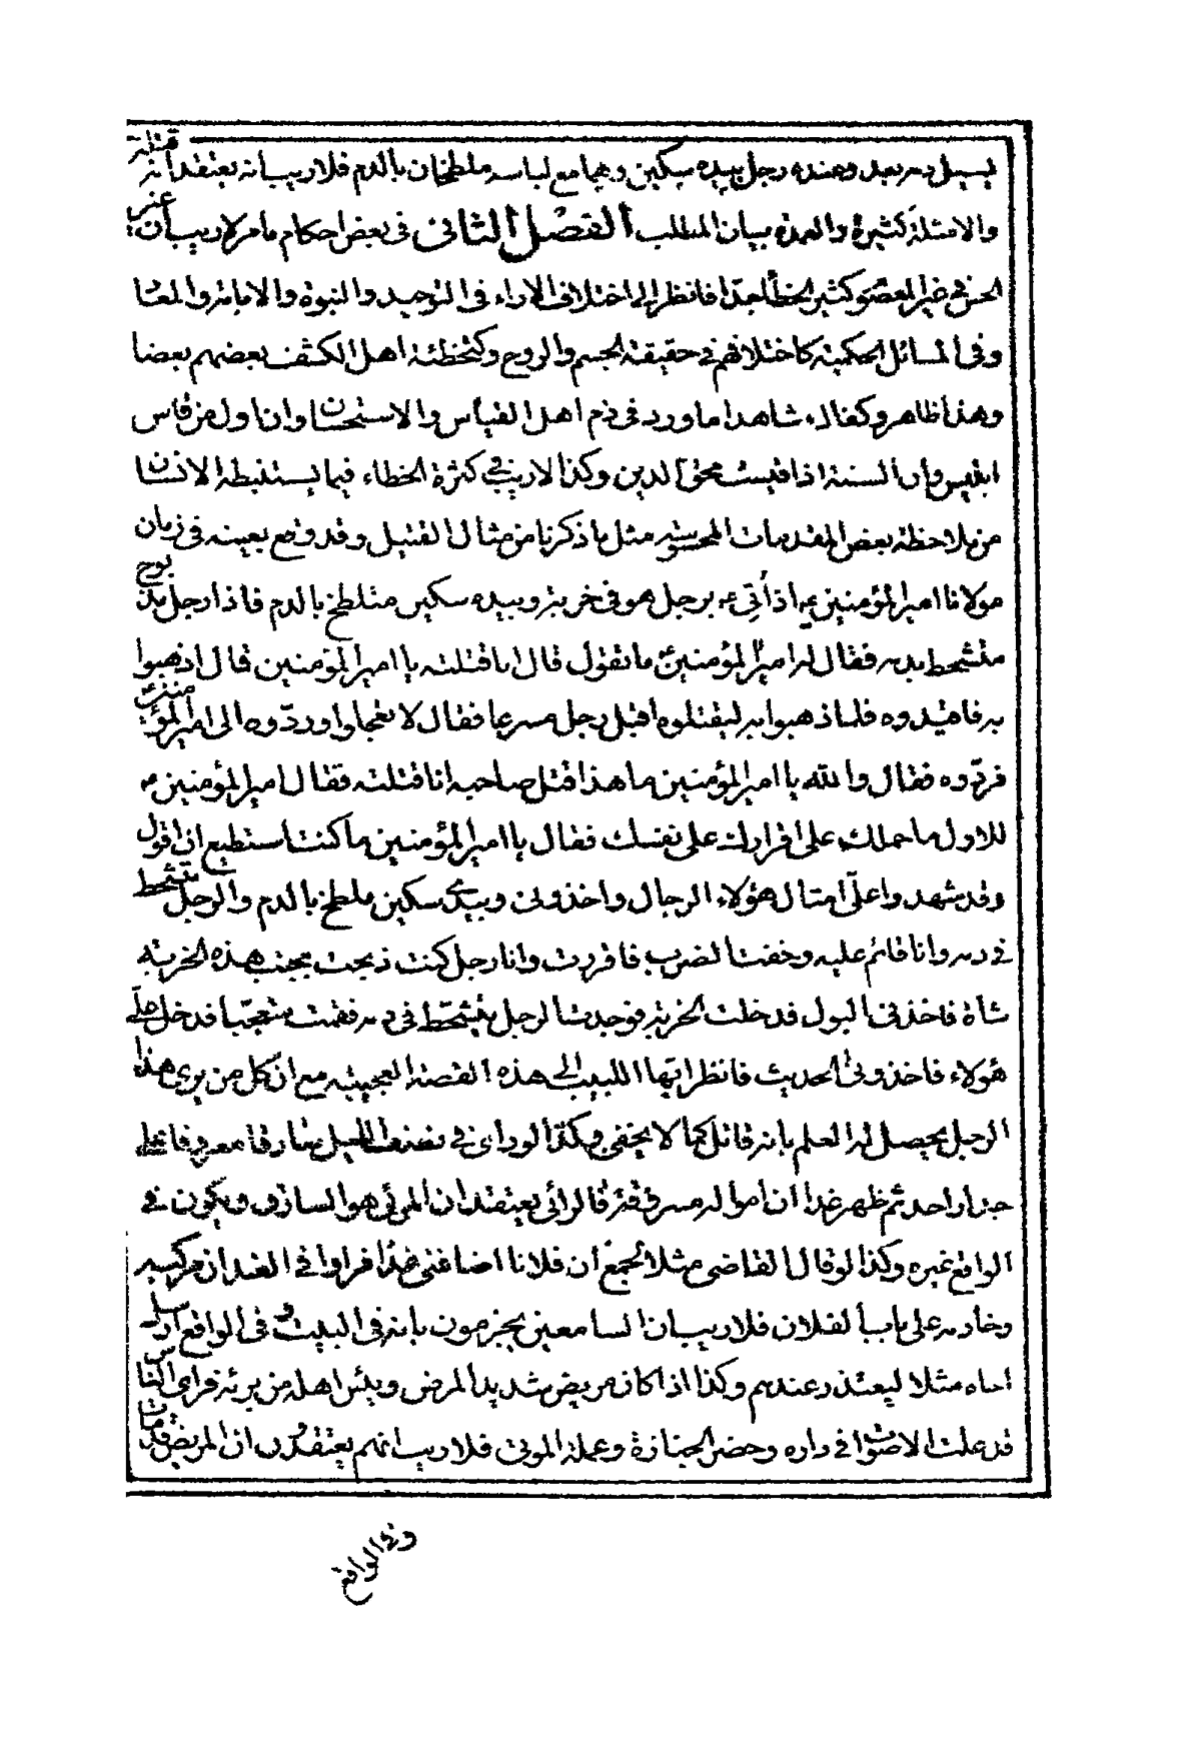 يسيل دمه بعد وعنده رجل بيده سكين وهما مع لباسه ملطخان بالدم فلا ريب انه يعتقد انه قتله
والامثلة كثيرة والعمدة بيان المطلب الفصل الثانى فى بعض احكام ما مر لا ريب ان
فى غير المعصوم كثير الخطأ جدا فانظر الى اختلاف الاراء فى التوحيد والنبوة والامامة والمعا
وفى المسائل الحكمية كاختلافهم فى حقيقة الجسم والروح وكتخطئة اهل الكشف بعضهم بعضا
وهذا ظاهر وكفاك شاهدا ما ورد فى ذم اهل القياس والاستحسان وان اول من قاس
ابليس وان السنة اذا قيست محق الدين وكذا لا ريب فى كثرة الخطاء فيما يستنبطه الانسان
من ملاحظة بعض المقدمات المحسوسة مثل ما ذكرنا من مثال القتيل وقد وقع بعينه فى زمان
مولانا امير المؤمنين ع اذ أتي برجل هو فى خربة وبيده سكين متلطخ بالدم فاذا رجل مذبوح
متشحط بدمه فقال له امير المؤمنين ع ما تقول قال انا قتلته يا امير المؤمنين قال اذهبوا
به فاقيدوه فلما ذهبوا به ليقتلوه اقبل رجل مسرعا فقال لا تعجلوا وردّوه الى امير المؤمنين
فردّوه فقال والله يا امير المؤمنين ما هذا قتل صاحبه انا قتلته فقال امير المؤمنين ع
للاول ما حملك على اقرارك على نفسك فقال يا امير المؤمنين ما كنت استطيع ان اقول
وقد شهد وا علىّ امثال هؤلاء الرجال واخذونى وبيدى سكين ملطخ بالدم والرجل يتشحط
فى دمه وانا قائم عليه وخفت الضرب فاقررت وانا رجل كنت ذبحت بجنب هذه الخربة
شاة فاخذنى البول فدخلت الخربة فوجدت الرجل يتشحّط فى دمه فقمت متعجّبا فدخل علىّ
هؤلاء فاخذونى الحديث فانظر ايّها اللبيب الى هذه القصة العجيبة مع انّ كل من يرى هذا
الرجل يحصل له العلم بانه قاتل كما لا يخفى وهكذا لو راى فى نصف الليل سارقا معروفا على
جدار احد ثم ظهر غدا ان امواله مسروقة فالرائى يعتقد ان المرئى هو السارق ويكون فى
الواقع غيره وكذا لو قال القاضى مثلا لجمع ان فلانا اضافنى غدا فراوا فى الغد ان مركبه
وخادمه على باب فلان فلا ريب ان السامعين يجزمون بانه فى البيت وفى الواقع ارسل
اخاه مثلا ليعتذر عندهم وكذا اذا كان مريض شديد المرض ويئس اهله من برئه فراى الناس
قد علت الاصوات فى داره وحضر الجنازة وعملة الموتى فلا ريب انهم يعتقدون ان المريض قد مات
وفى الواقع